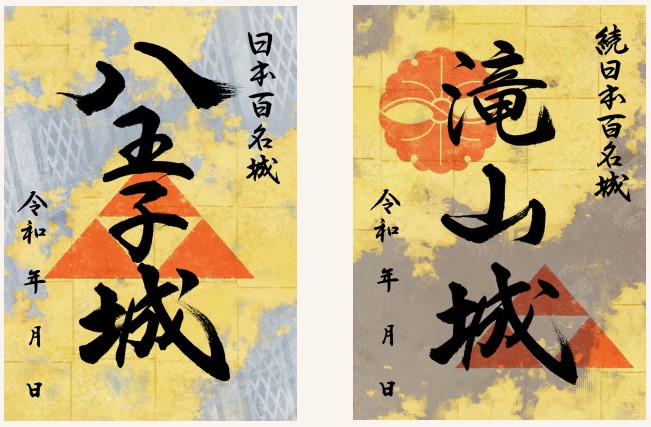 日本百名城
八王子城
令和 年 月 日
続日本百名城
滝山城
令和 年 月 日